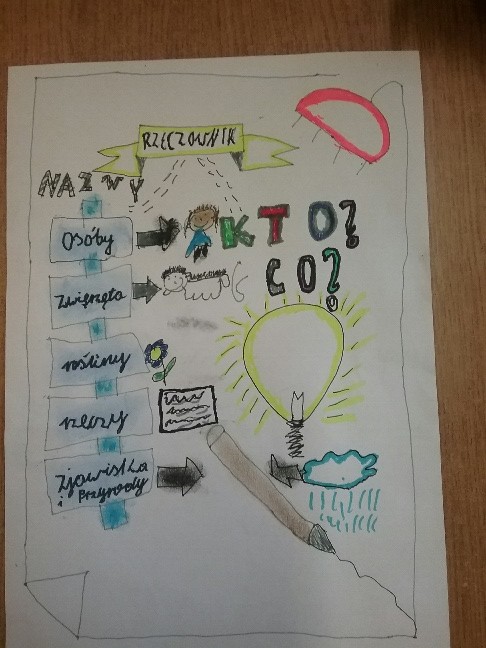 RZECZOWNIK
NAZWY
osoby
KTO?
CO?
zwierzęta
rośliny
rzeczy
Zjawiska
i Przyrody